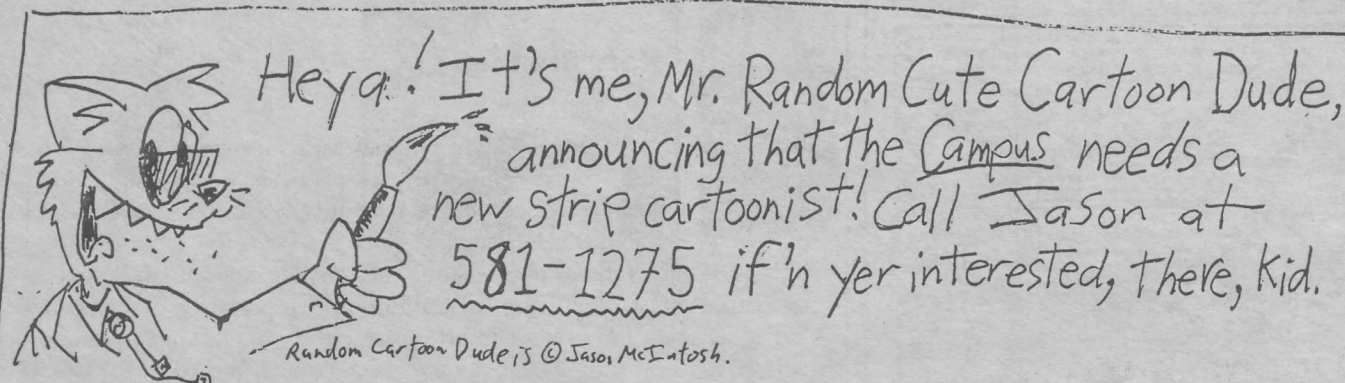 Heya! It's me, Mr. Random Cute Cartoon Dude,
announcing that the Campus needs a
new strip cartoonist! Call Jason at
581-1275 if'n yer interested, there, kid.
Random Cartoon Dude is © Jason McIntosh.